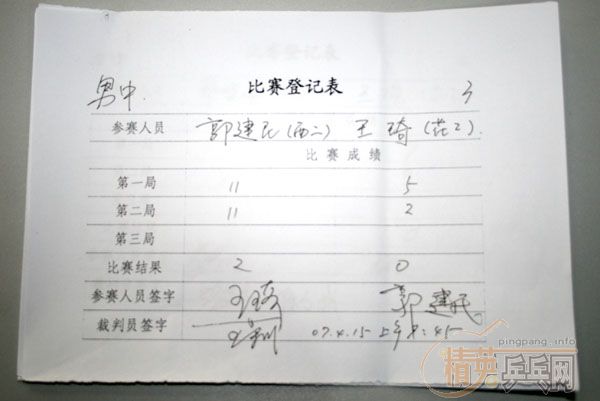 比赛登记表
男中. 3
参赛人员 郭建民(西二) 王琦(花2).
比赛成绩
第一局 11 5
第二局 11 2
第三局
比赛结果 2 0
参赛人员签字 王琦 郭建民
裁判员签字 07.4.15 上午 :45
pingpang.info
精英乒乓网